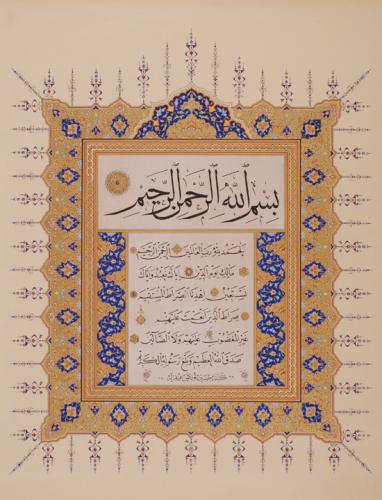 بِسْمِ اللَّهِ الرَّحْمَٰنِ الرَّحِيمِ
الحمد لله رب العالمين الرحمن الرحيم
مالك يوم الدين إياك نعبد وإياك
نستعين اهدنا الصراط المستقيم
صراط الذين أنعمت عليهم
غير المغضوب عليهم ولا الضالين
صدق الله العظيم وبلغ رسوله الكريم